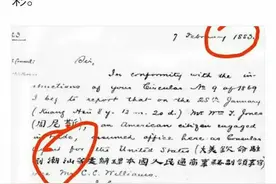 衫。
7 February 1883.
Sir,
In conformity with the in-
structions of your Circular No 9 of 1869
I beg to report that on the 25th January
(Kuang Hsü 8 y. 12 m. 20 d.) Mr W. T. Jones
an American citizen engaged
in trade, assumed office here, as Consular
for the United States (大美
到潮汕 辦理本國人民通商事務副領事官
Mr C. C. Williams.